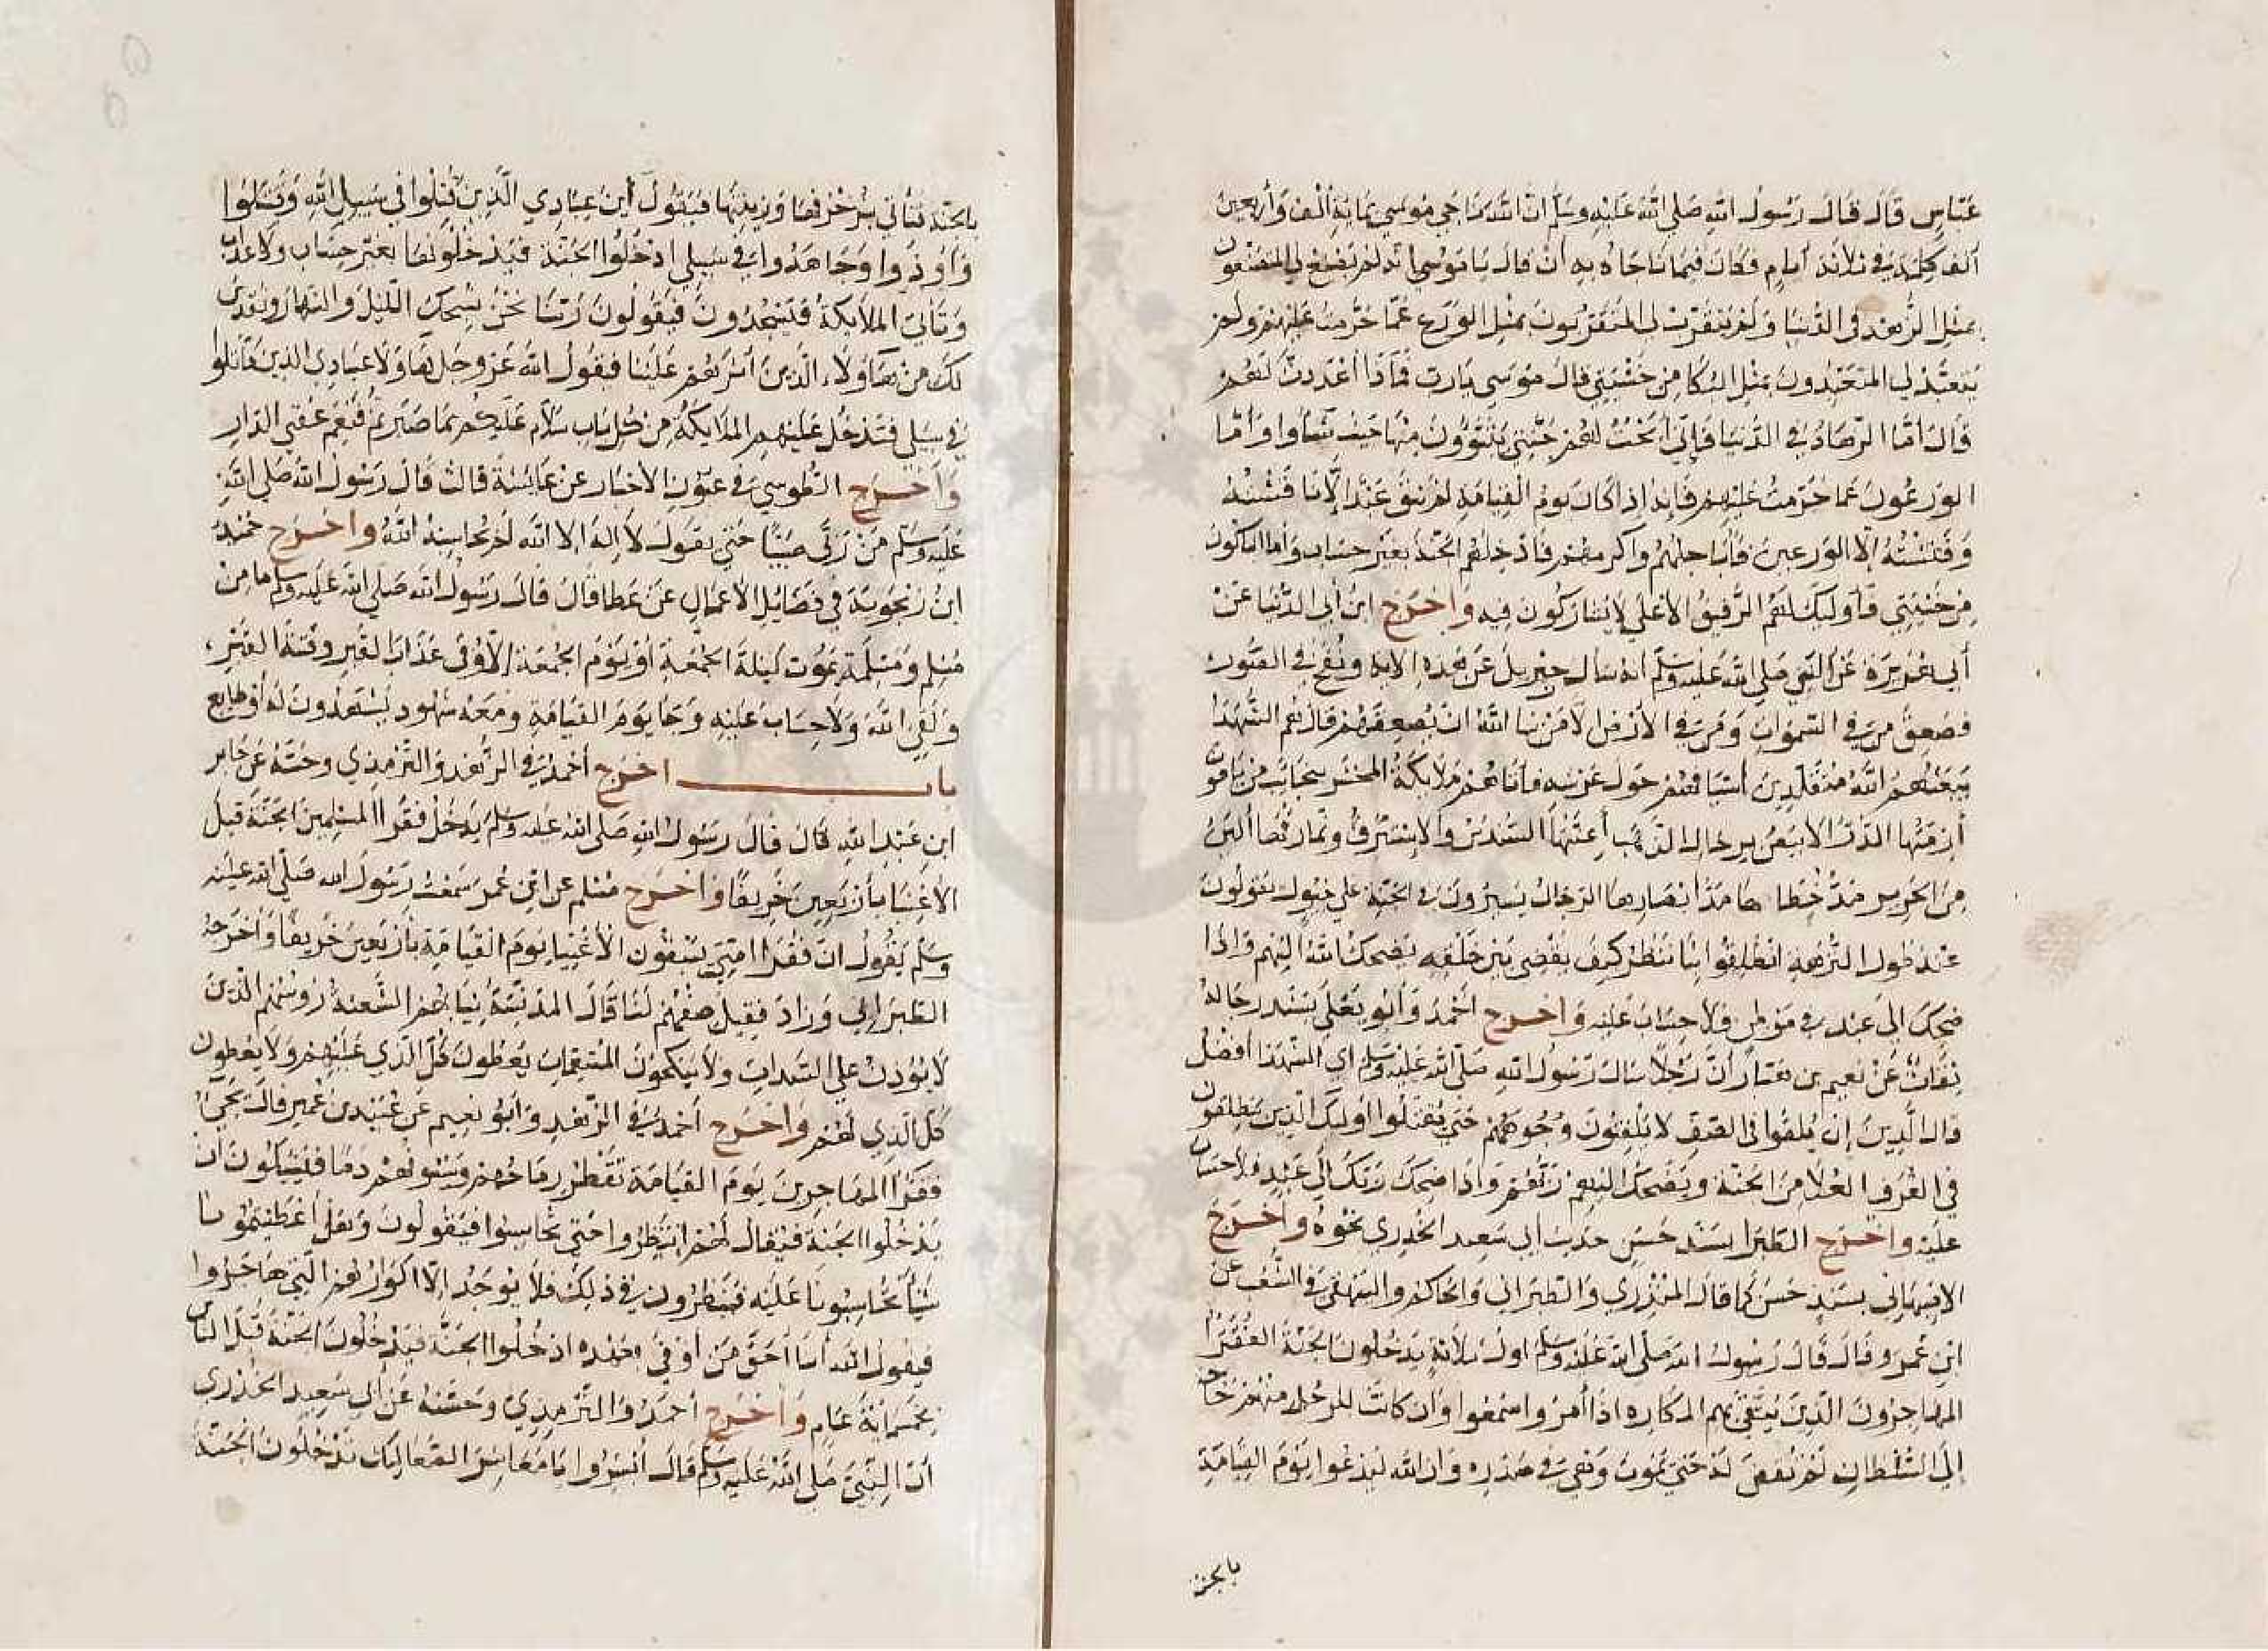 عباس قال قال رسول الله صلى الله عليه وسلم ان الله ناجى موسى بماية ألف وأربعين
ألف كلمة في ثلاثة أيام فكان فيما ناجاه به أن قال يا موسى انه لم يتصنع لي المتصنعون
بمثل الزهد في الدنيا ولم يتقرب لي المتقربون بمثل الورع عما حرمت عليهم ولم
يتعبد لي المتعبدون بمثل البكا من خشيتي قال موسى يا رب فماذا أعددت لهم
قال أما الزهاد في الدنيا فإني أبحت لهم جنتي يتبوؤون منها حيث يشاوا وأما
الورعون عما حرمت عليهم فإنه اذا كان يوم القيامة لم يبق عبد إلا ناقشته
وفتشته إلا الورعين فأنا أجلهم وأكرمهم فادخلهم الجنة بغير حساب وأما الباكون
من خشيتي فأوليك لهم الرفيق الأعلى لا يشاركون فيه وأخرج ابن أبي الدنيا عن
أبي هريرة عن النبي صلى الله عليه وسلم أنه سأل جبريل عن هذه الاية ونفخ في الصور
فصعق من في السموات ومن في الأرض إلا من شا الله ان يصعقهم قال هم الشهدا
يبعثهم الله متقلدين أسيافهم حول عرشه فأتاهم ملايكة المحشر بنجائب من ياقوت
أزمتها الدر الأبيض برحال الذهب أعنتها السندس والاستبرق ونمارقها ألين
من الحرير مد خطاها مد أبصارها الرجال يسيرون في الجنة على خيول يقولون
عند طول النزهه انطلقوا بنا ننظر كيف يقضي بين خلقه يضحك الله اليهم واذا
ضحك الى عبد في موطن فلا حساب عليه وأخرج أحمد وأبو يعلى بسند رجاله
ثقات عن نعيم بن همار أن رجلا سأل رسول الله صلى الله عليه وسلم اي الشهدا أفضل
قال الذين إن يلقوا في الصف لا يلفتون وجوههم حتى يقتلوا أوليك الذين ينطلقون
في الغرف العلا من الجنة ويضحك اليهم ربهم واذا ضحك ربك إلى عبد فلا حساب
عليه وأخرج الطبرا بسند حسن حديث أبي سعيد الخدري نحوه وأخرج
الاصبهاني بسند حسن كما قال المنذري والطبراني والحاكم والبيهقي في الشعب عن
ابن عمرو قال قال رسول الله صلى الله عليه وسلم اول ثلاثة يدخلون الجنة الفقرا
المهاجرون الذين يتقى بهم المكاره اذا أمروا سمعوا وان كانت للرجل منهم حاجة
إلى السلطان لم تقض له حتى يموت وهي في صدره وان الله ليدعوا يوم القيامة
بالجنة
بالجنة فتأتي بزخرفها وزينتها فيقول أين عبادي الذين قتلوا في سبيل الله وقتلوا
وأوذوا وجاهدوا في سبيلي ادخلوا الجنة فيدخلونها بغير حساب ولا عذاب
وتأتي الملايكة فتسجدون فيقولون ربنا نحن نسبحك الليل والنهار ونقدس
لك من هاؤلاء الذين أثرتهم علينا فيقول الله عز وجل هاولا عبادي الذين قاتلوا
في سبيلي فتدخل عليهم الملايكة من كل باب سلام عليكم بما صبرتم فنعم عقبى الدار
وأخرج الطوسي في عيون الأخبار عن عايشة قالت قال رسول الله صلى الله
عليه وسلم من ربى صبيا حتى يقول لا اله الا الله لم يحاسبه الله وأخرج حميد
ابن زنجويه في فضايل الأعمال عن عطا قال قال رسول الله صلى الله عليه وسلم ما من
مسلم ومسلمة يموت ليلة الجمعة أو يوم الجمعة إلا وقي عذاب القبر وفتنة القبر
ولقي الله ولا حساب عليه وجا يوم القيامة ومعه شهود يشهدون له أو طابع
باب اخرج أحمد في الزهد والترمذي وحسنه عن جابر
ابن عبد الله قال قال رسول الله صلى الله عليه وسلم يدخل فقرا المسلمين الجنة قبل
الأغنيا بأربعين خريفا وأخرج مسلم عن ابن عمر سمعت رسول الله صلى الله عليه
وسلم يقول ان فقرا امتي يسبقون الأغنيا يوم القيامة بأربعين خريفا وأخرجه
الطبراني وزاد فقيل صفهم لنا قال المدنسة ثيابهم الشعثة روسهم الذين
لا يوذن على السدات ولا ينكحون المتنعمات يعطون كل الذي عليهم ولا يعطون
كل الذي لهم وأخرج أحمد في الزهد وابو نعيم عن عبيد بن عمير قال يجيء
فقرا المهاجرين يوم القيامة تقطر رماحهم وسيوفهم دما فيسألون أن
يدخلوا الجنة فيقال لهم انتظروا حتى تحاسبوا فيقولون وهل أعطيتمونا
شيئا تحاسبونا عليه فينظرون في ذلك فلا يوجد إلا اكوارهم التي هاجروا
فيقول الله أنا أحق من أوفى بعهده ادخلوا الجنة فيدخلون الجنة قبل الناس
بخمسماية عام وأخرج أحمد والترمذي وحسنه عن أبي سعيد الخدري
أن النبي صلى الله عليه وسلم قال أبشروا يا معاشر الصعاليك تدخلون الجنة